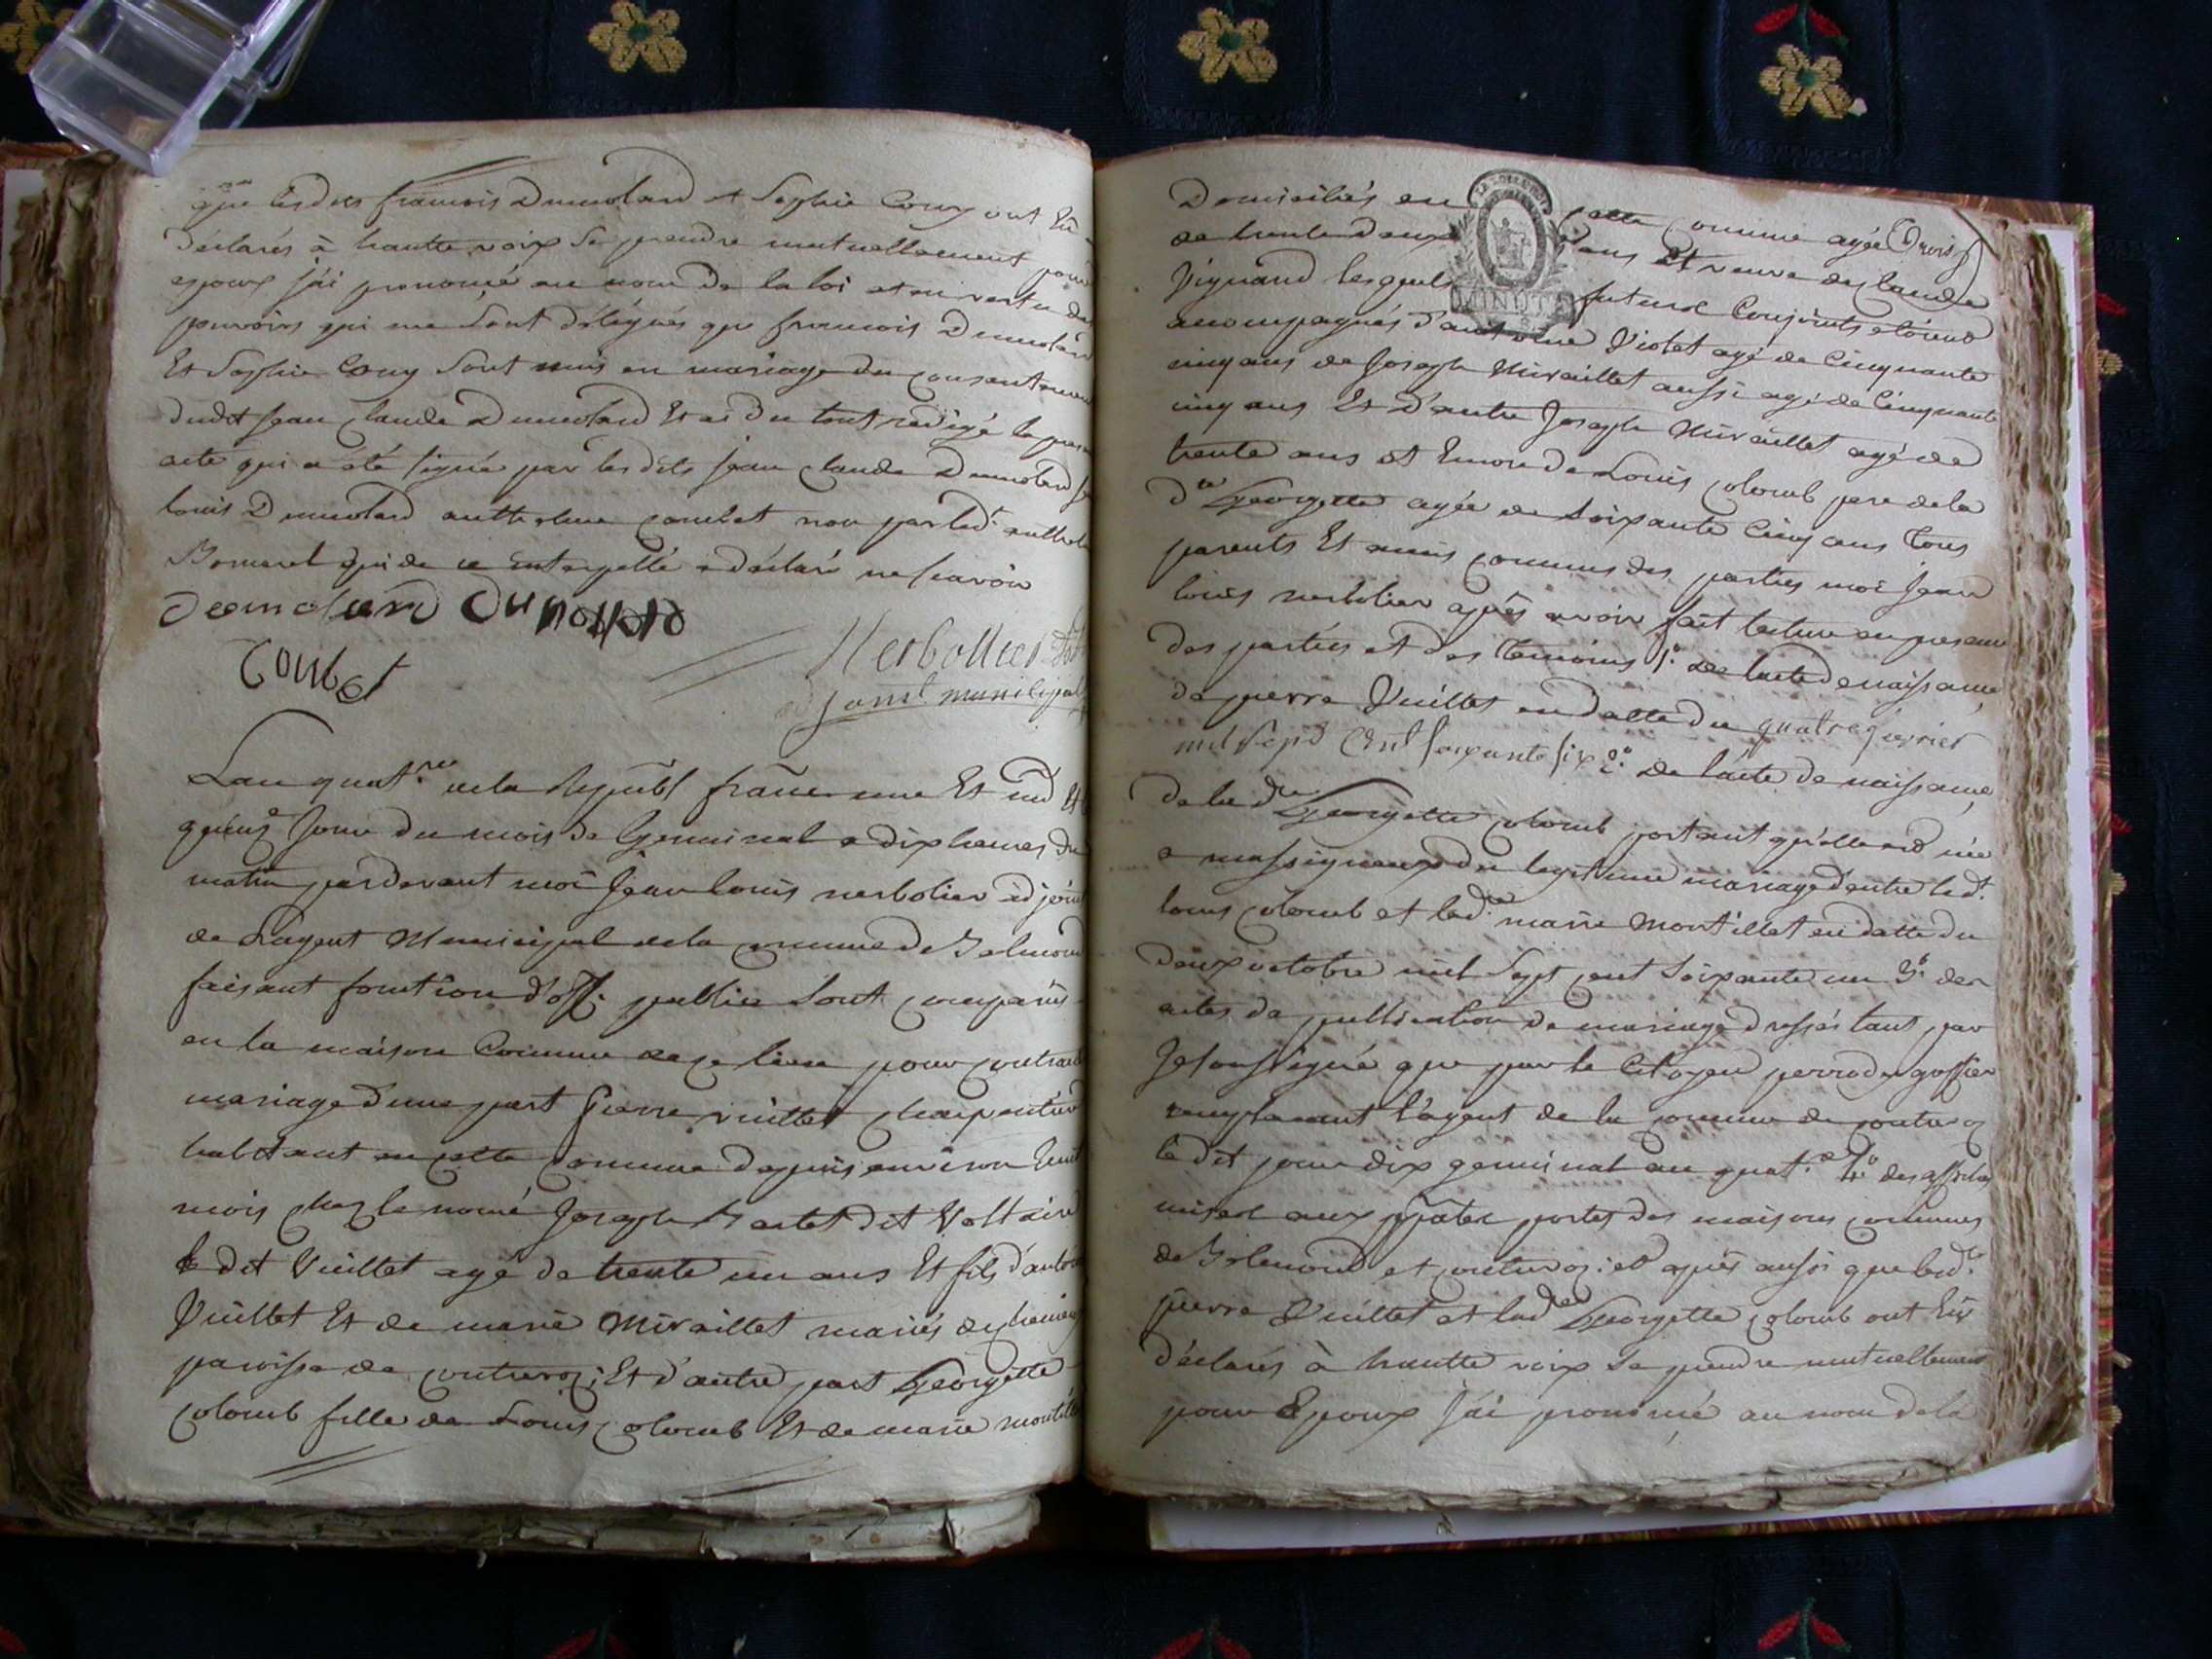 que lesdits francois Dumolard et Sophie Cony ont Eü
déclarés à hautte voix se prendre mutuellement pour
epoux j'ai prononcé au nom de la loi et en vertu des
pouvoirs qui me sont délégués que francois Dumolard
Et Sophie Cony sont unis en mariage du consentement
dudit Jean Claude Dumolard Et ai du tout redigé le
acte qui a été signé par lesdits Jean Claude Dumolard
louis Dumolard anthelme Combet non par led.t
qui de ce Enterpellé a déclaré ne savoir
Dumolard Dumolard
Combet
Nerbollier
adjoint municipal
Lan quat.me de la Republ francaise Et und Et
quinz.e Jour du mois de Germinal a dix heures du
matin pardevant moi Jean louis nerbolier adjoint
de Lagent Municipal de la commune de Belmond
faisant fonction d'off. public sont comparus
en la maison Commune de ce lieu pour contracter
mariage d'une part pierre vuillet charpentier
habitant en cette commune depuis environ huit
mois chez le nomé Joseph dit Voltaire
le dit Vuillet agé de trente un ans Et fils d'antoine
Vuillet Et de marie Miraillet mariés de
paroisse de contrevoz; Et d'autre part Georgette
colomb fille de Louis Colomb Et de marie montillet
Domiciliés en cette Commune agée (Trois)
de trente deux ans Et veuve de Claude
Vignand lesquels futurs Conjoints étoient
acompagnés d'antoine Violet agé de Cinquante
cinq ans de Joseph Miraillet aussi agé de Cinquante
cinq ans Et d'autre Joseph Miraillet agé de
trente ans et Encore de Louis colomb pere de la
d.te Georgette agée de soixante Cinq ans Tous
parents Et amis communs des parties moi Jean
louis nerbolier après avoir fait lecture en presence
des parties et des temoins 1.o de lacte de naissance
de pierre Vuillet en datte du quatre fevrier
mil sept Cent soixante six 2.o de lacte de naissance
de lad.te Georgette colomb portant qu'elle est née
a massigneux du legitime mariage d'entre led.t
louis colomb et lad.te marie Montillet en datte du
deux octobre mil sept cent soixante un 3.o des
actes de publication de mariage dressés tant par
Je soussigné que par le Citoyen
remplacant l'agent de la commune de contrevoz
le dit jour dix germinal an quat.e 4.o des affiches
mises aux pp.ales portes des maisons communes
de Belmond et contrevoz; et après aussi que led.t
pierre Vuillet et lad.te Georgette colomb ont Eu
déclarés à hautte voix se prendre mutuellement
pour Epoux J'ai prononcé au nom de la